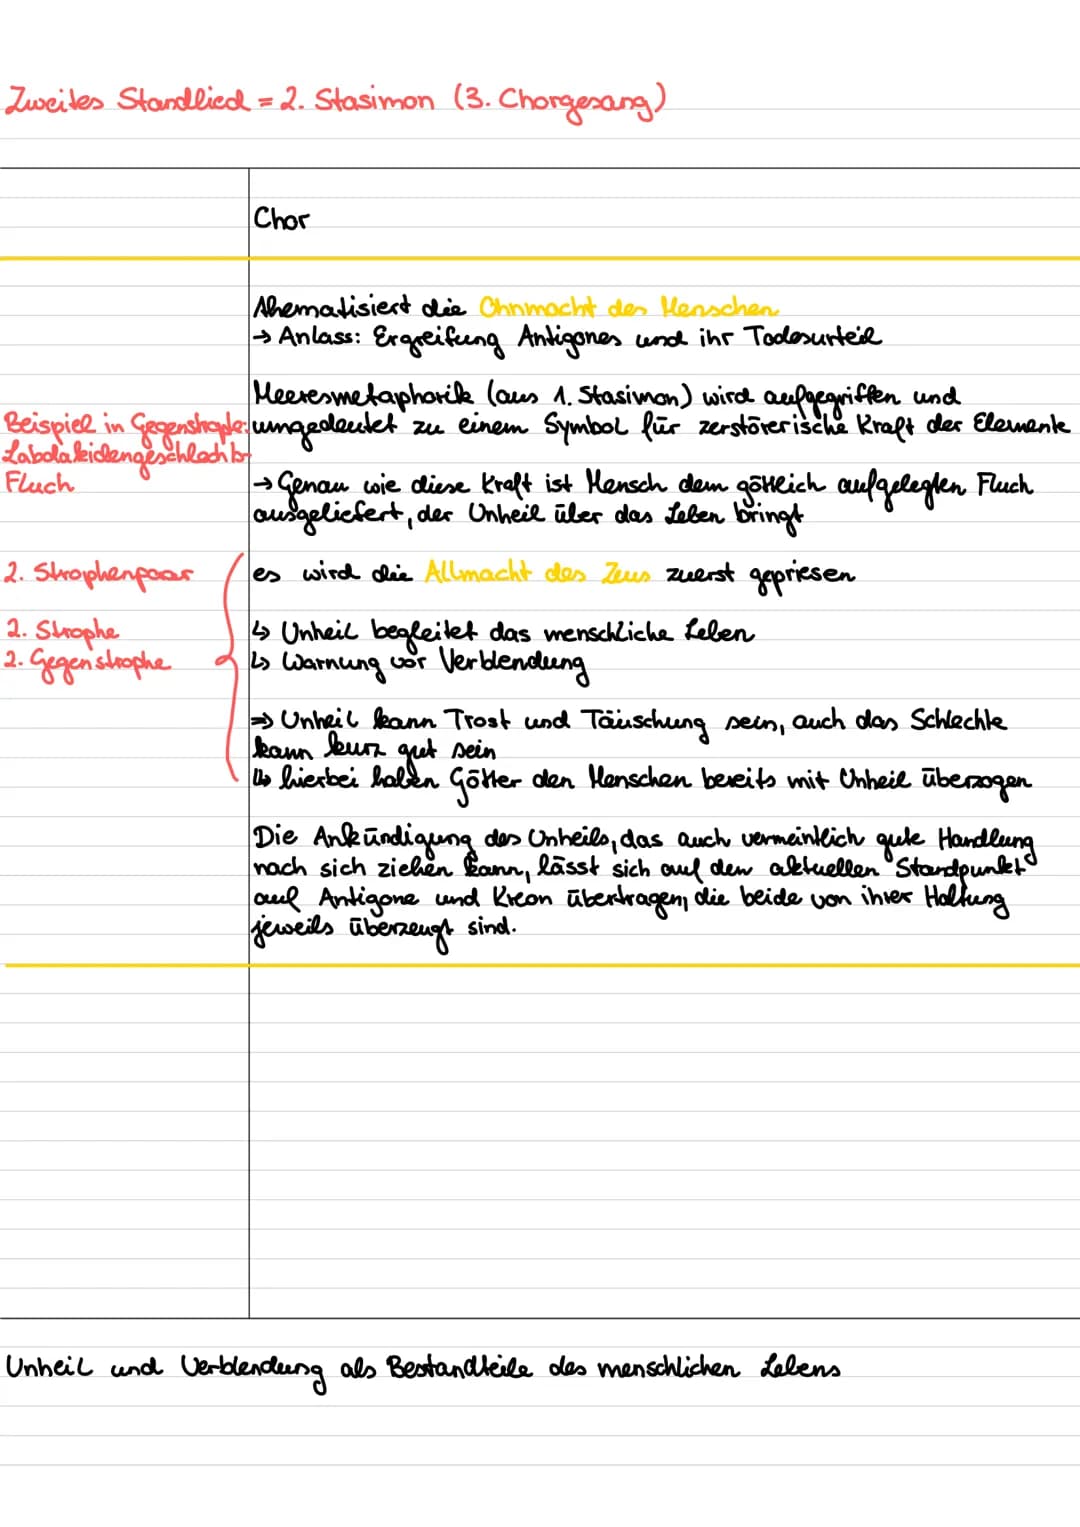 Zweites Standlied = 2. Stasimon (3. Chorgesang)
Chor
Thematisiert die Ohnmacht des Menschen
→ Anlass: Ergreifung Antigones und ihr Todesurteil
Meeresmetaphorik (aus 1. Stasimon) wird aufgegriffen und
umgedeutet zu einem Symbol für zerstörerische Kraft der Elemente
Beispiel in Gegenstrophe:
Labdakidengeschlecht
Fluch
→ Genau wie diese Kraft ist Mensch dem göttlich aufgelegten Fluch
ausgeliefert, der Unheil über das Leben bringt
2. Strophenpaar
es wird die Allmacht des Zeus zuerst gepriesen
2. Strophe
2. Gegenstrophe
↳ Unheil begleitet das menschliche Leben
↳ Warnung vor Verblendung
⇒ Unheil kann Trost und Täuschung sein, auch das Schlechte
kann kurz gut sein
↳ hierbei haben Götter den Menschen bereits mit Unheil überzogen
Die Ankündigung des Unheils, das auch vermeintlich gute Handlung
nach sich ziehen kann, lässt sich auf den aktuellen Standpunkt
auf Antigone und Kreon übertragen, die beide von ihrer Haltung
jeweils überzeugt sind.
Unheil und Verblendung als Bestandteile des menschlichen Lebens